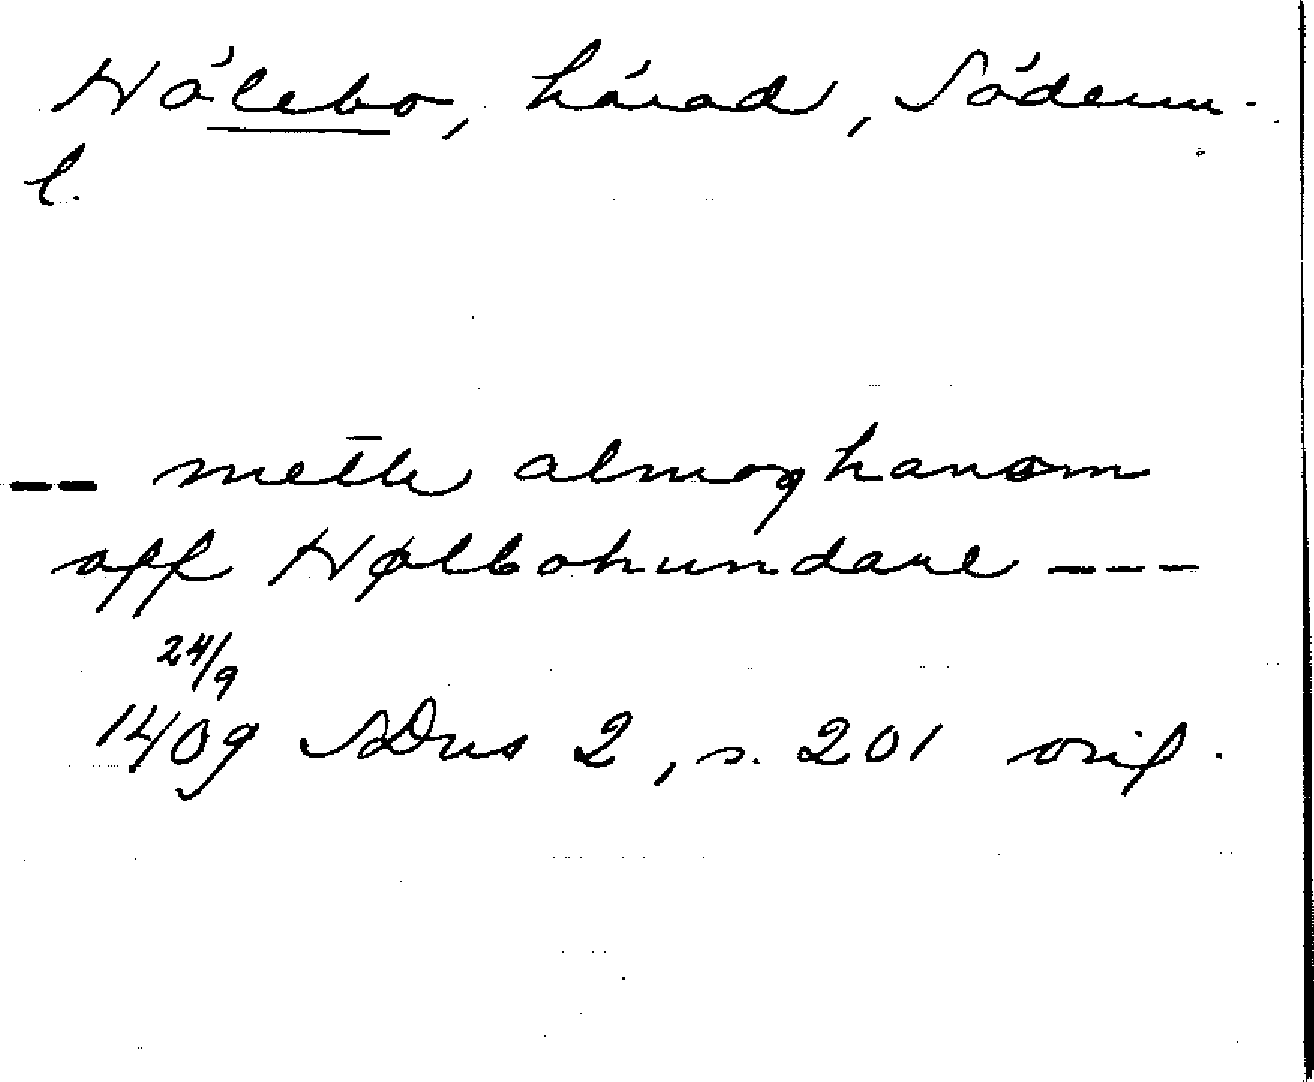 Hölebo, härad, Söderm.
l.
-- metħ almoghanom
aff Hølbohundare ---
24/9
1409 SDns 2, s. 201 orig.